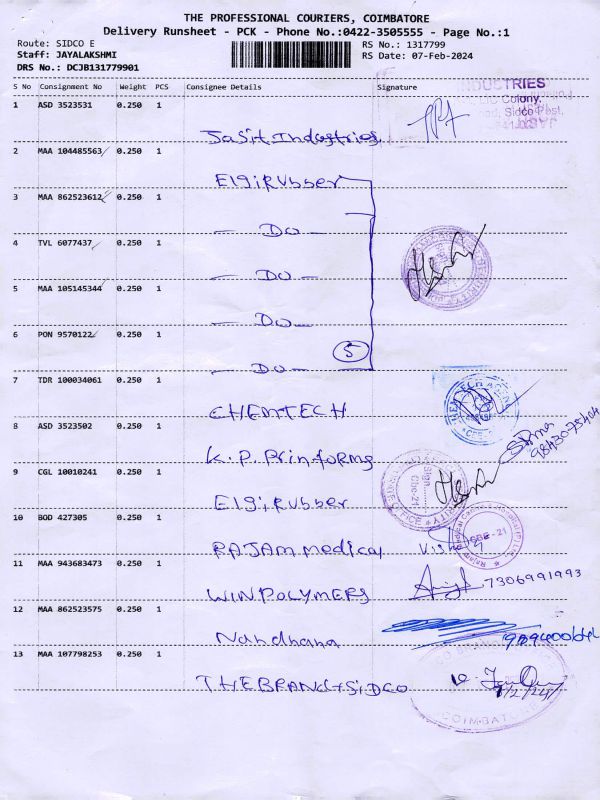 THE PROFESSIONAL COURIERS, COIMBATORE
Delivery Runsheet - PCK - Phone No.:0422-3505555 - Page No.:1
Route: SIDCO E
Staff: JAYALAKSHMI
DRS No.: DCJB131779901
RS No.: 1317799
RS Date: 07-Feb-2024
S No Consignment No Weight PCS Consignee Details Signature
1 ASD 3523531 0.250 1
Jasit Industries
INDUSTRIES
Colony,
Sidco Post,
2 MAA 104485563 0.250 1
Elgi Rubber
3 MAA 862523612 0.250 1
— Do —
4 TVL 6077437 0.250 1
— Do —
5 MAA 105145344 0.250 1
— Do —
6 PON 9570122 0.250 1
5
— Do —
7 TDR 100034061 0.250 1
CHEMTECH
8 ASD 3523502 0.250 1
K.P. Prinforms
98430-75404
9 CGL 10010241 0.250 1
Elgi Rubber
10 BOD 427305 0.250 1
RAJAM medical
CBE-21
11 MAA 943683473 0.250 1
WIN POLYMERS
7306991993
12 MAA 862523575 0.250 1
Nandhana
13 MAA 107798253 0.250 1
THE BRANCH SIDCO
COIMBATORE